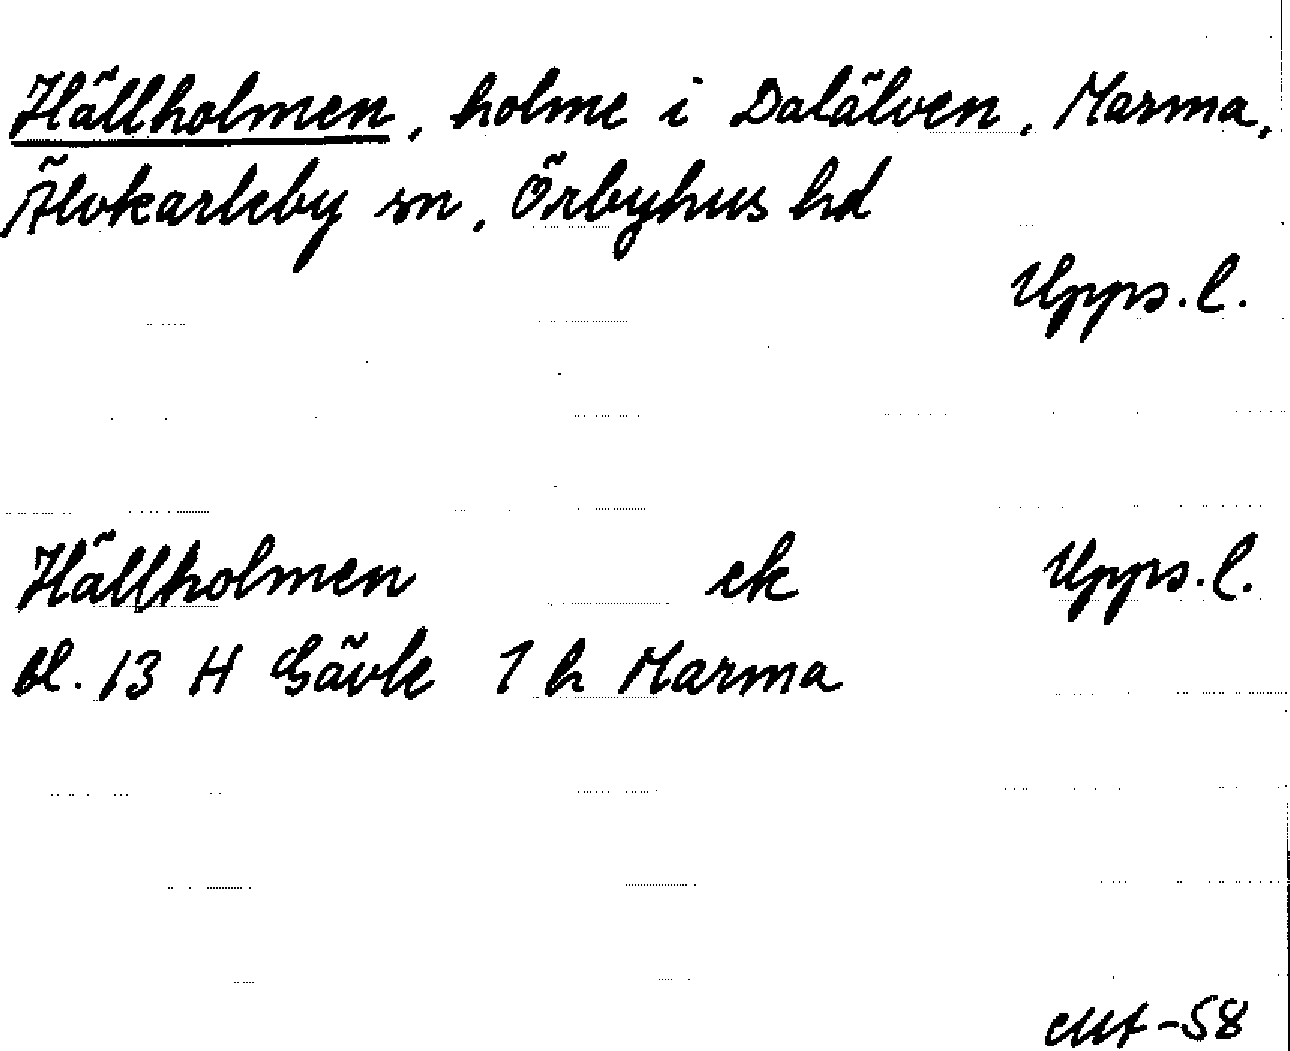 Hällholmen, holme i Dalälven, Marma,
Älvkarleby sn, Örbyhus hd
Upps.l.
Hällholmen ek Upps.l.
bl. 13 H Gävle 1 h Marma
-58